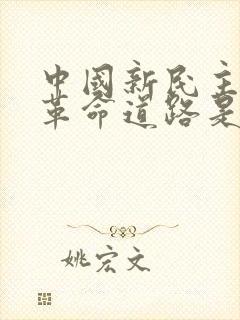 中國新民主
革命道路是
姚宏文